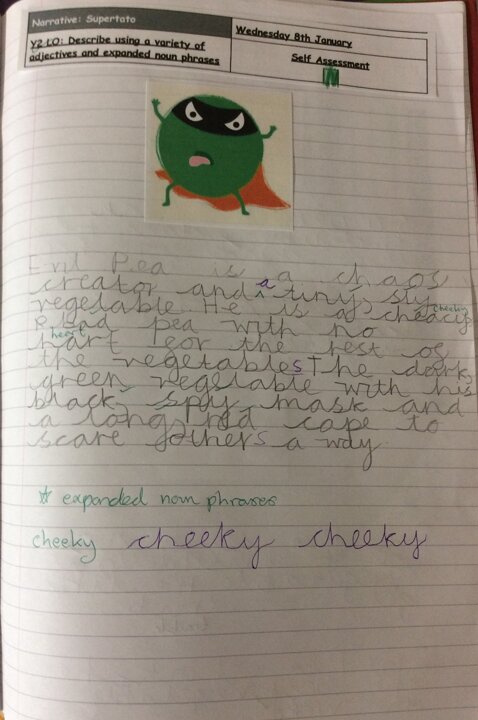 Narrative: Supertato
Y2 LO: Describe using a variety of adjectives and expanded noun phrases
Wednesday 8th January
Self Assessment
Evil Pea is a chaos
creator and a tiny, sly
vegetable. He is a cheacig cheeky
bad pea with no
hart heart for the rest of
the vegetables The dark,
green vegetable with his
black spy mask and
a long red cape to
scare others a way
☆ expanded noun phrases
cheeky cheeky cheeky